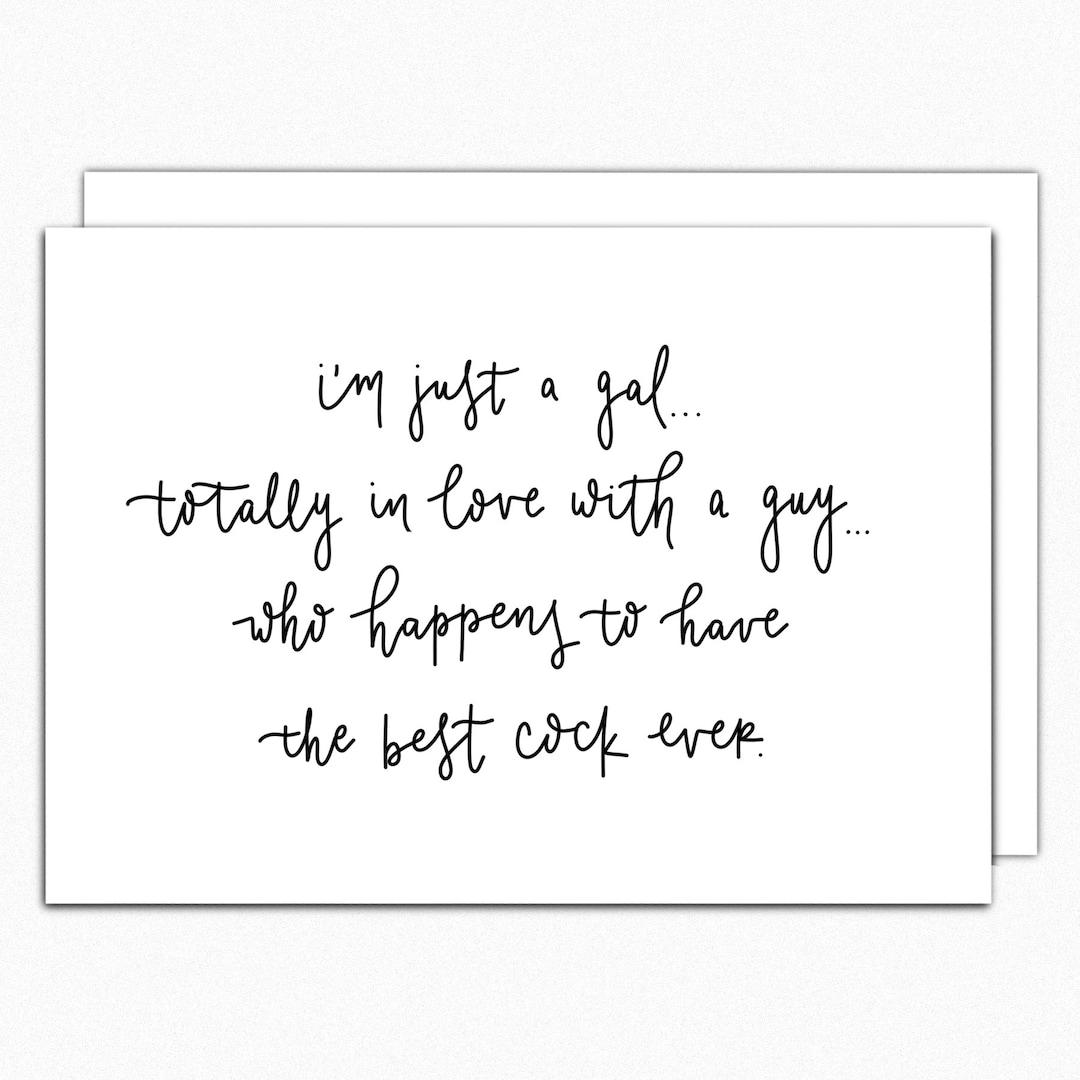 i'm just a gal...
totally in love with a guy...
who happens to have
the best cock ever.